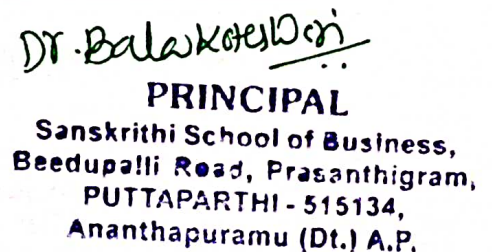 Dr. Balakoteswari
PRINCIPAL
Sanskrithi School of Business,
Beedupalli Road, Prasanthigram,
PUTTAPARTHI - 515134,
Ananthapuramu (Dt.) A.P.